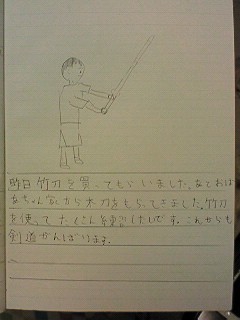 昨日竹刀を買ってもらいました。あとおば
あちゃん家から木刀をもらってきました。竹刀
を使ってたくさん練習したいです。これからも
剣道がんばります。